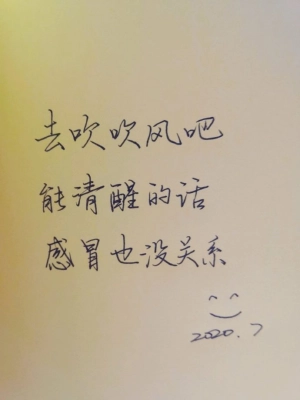 去吹吹风吧
能清醒的话
感冒也没关系
2020.7